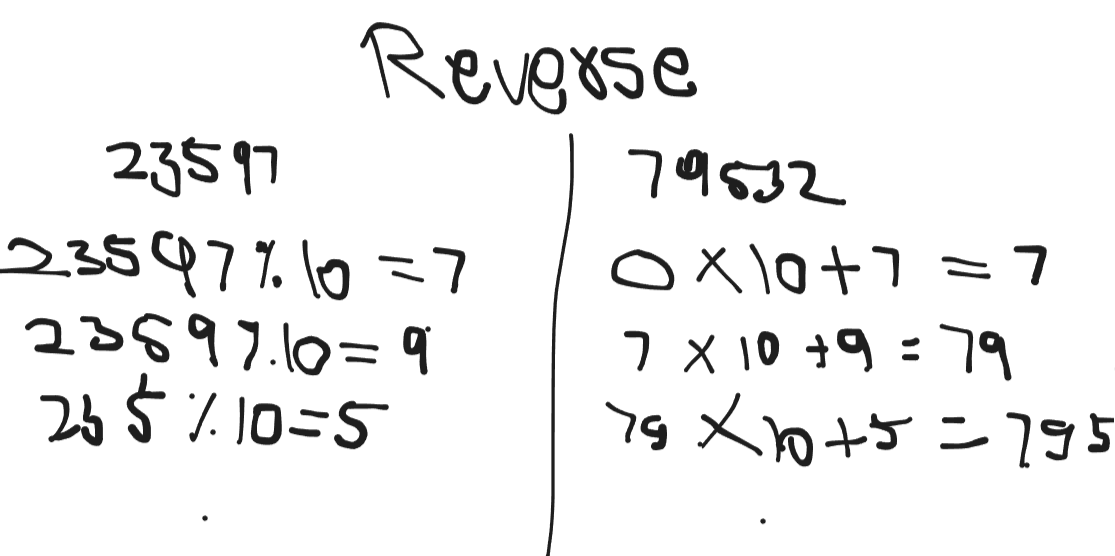 Reverse
23597
23597 % 10 = 7
2359 % 10 = 9
235 % 10 = 5
79532
0 × 10 + 7 = 7
7 × 10 + 9 = 79
79 × 10 + 5 = 795